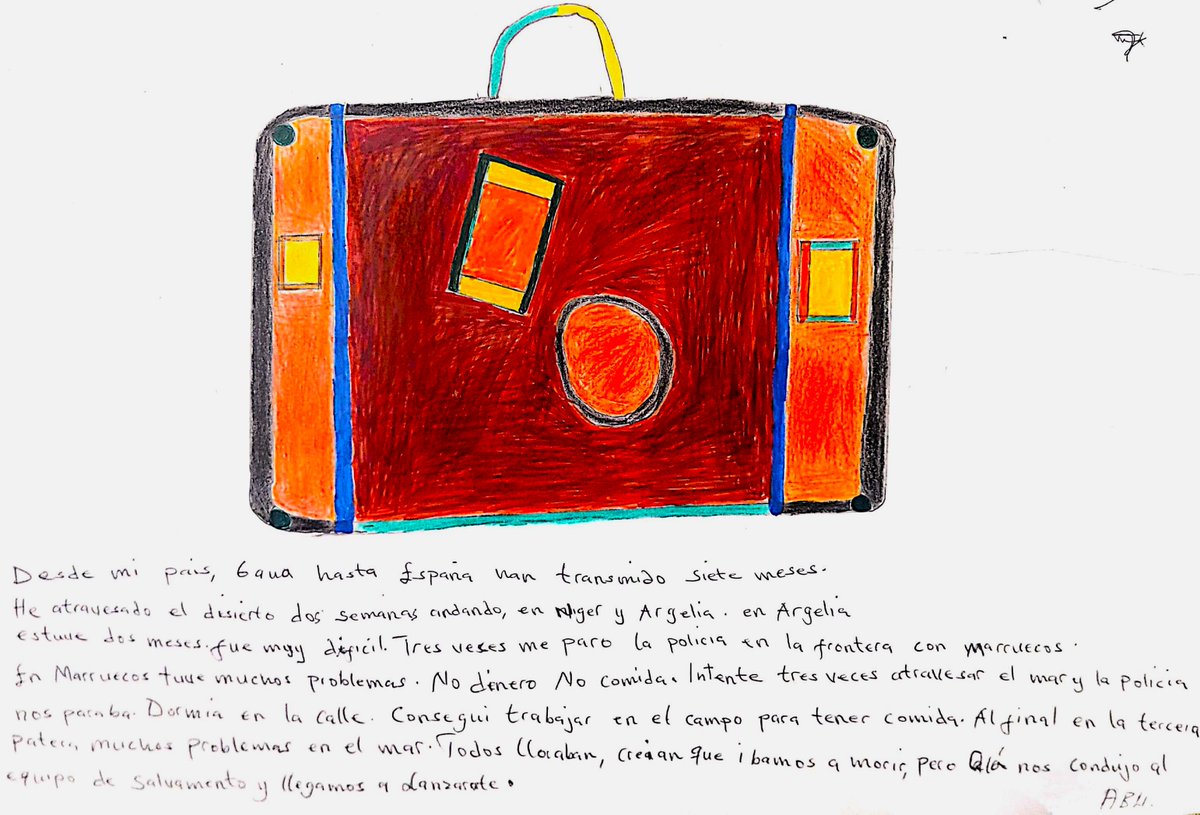 Desde mi pais, Gana hasta España han transmido siete meses.
He atravesado el disierto dos semanas andando, en Niger y Argelia. en Argelia
estuve dos meses. fue muy dificil. Tres veses me paro la policia en la frontera con marruecos.
En Marruecos tuve muchos problemas. No dinero No comida. Intente tres veces atravesar el mar y la policia
nos paraba. Dormia en la calle. Consegui trabajar en el campo para tener comida. Al final en la tercera
patera muchos problemas en el mar. Todos lloraban, creian que ibamos a morir, pero Alá nos condujo al
equipo de salvamento y llegamos a Lanzarote.
ABU.